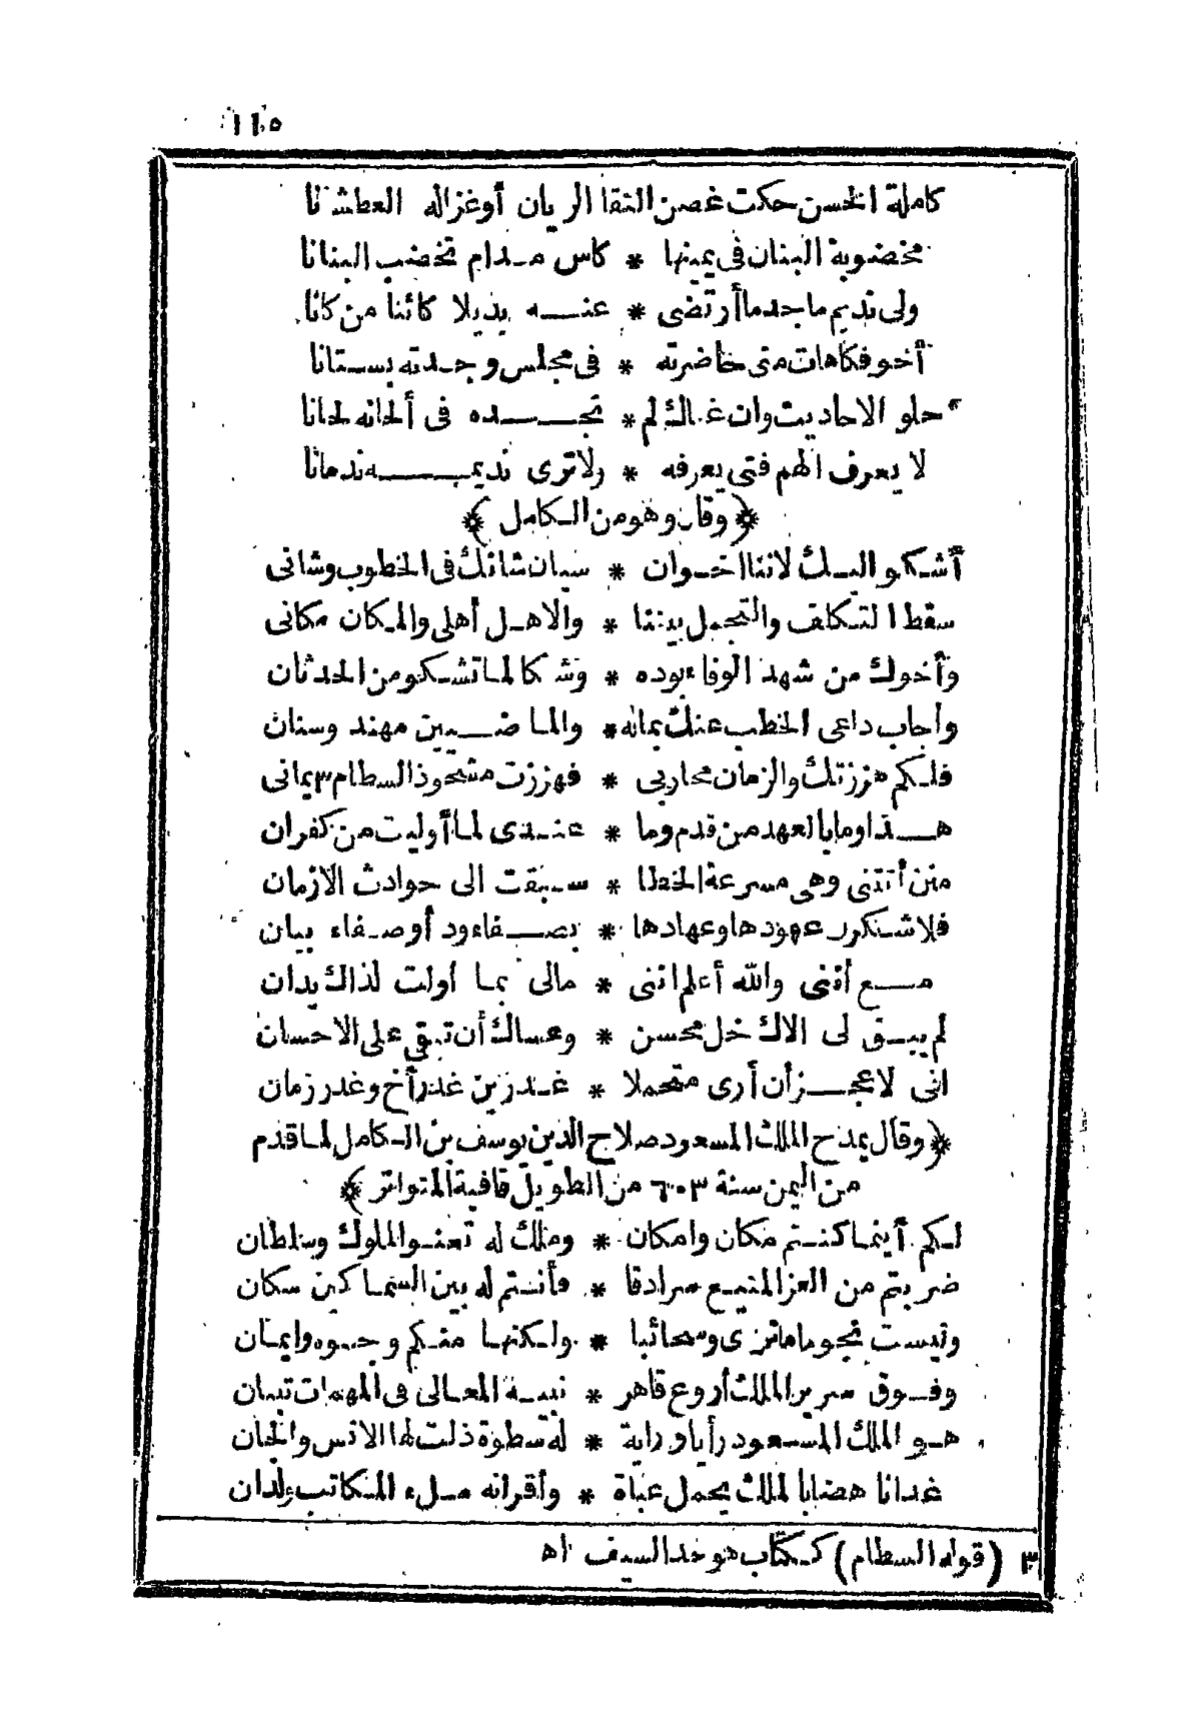 ١١٥
كاملة الحسن حكت غصن النقا الريان أو غزاله العطشانا
مخضوبة البنان فى يمينها * كاس مدام تخضب البنانا
ولى نديم ماجد ما أرتضى * عنه بديلا كائنا من كانا
أخو فكاهات متى حاضرته * فى مجلس وجدته بستانا
حلو الاحاديث وان غناك لم * تجده فى ألحانه لحانا
لا يعرف الهم فتى يعرفه * ولا ترى نديمه ندمانا
﴿ وقال وهو من الكامل ﴾
أشكو اليك لاننا اخوان * سيان شانك فى الخطوب وشانى
سقط التكلف والتجمل بيننا * والاهل أهلى والمكان مكانى
وأخوك من شهد الوفاء بوده * وشكا لما تشكو من الحدثان
وأجاب داعى الخطب عنك بماله * والماضيين مهند وسنان
فلكم هززتك والزمان محاربى * فهززت مشحوذ السطام ٣ يمانى
هذا وما بالعهد من قدم وما * عندى لما أوليت من كفران
منن أتتنى وهى مسرعة الخطا * سبقت الى حوادث الازمان
فلاشكرن عهودها وعهادها * بصفاء ود أو صفاء بيان
مع أننى والله أعلم اننى * مالى بما أولت لذاك يدان
لم يبق لى الاك خل محسن * وعساك أن تبقى على الاحسان
انى لاعجز أن أرى متحملا * غدرين غدر أخ وغدر زمان
﴿ وقال يمدح الملك المسعود صلاح الدين يوسف بن الكامل لما قدم
من اليمن سنة ٦٠٣ من الطويل قافية المتواتر ﴾
لكم أينما كنتم مكان وامكان * وملك له تعنو الملوك وسلطان
ضربتم من العز المنيع سرادقا * فأنتم له بين السماكين سكان
وليست نجوما ما ترى وسحائبا * ولكنها منكم وجوه وايمان
وفوق سرير الملك أروع قاهر * نبيه المعالى فى المهمات تبهان
هو الملك المسعود رأيا وراية * له سطوة ذلت لها الانس والجان
غدا ناهضا بالملك يحمل عبأه * وأقرانه ملء المكاتب ولدان
٣ (قوله السطام) ككتاب هو حد السيف اه